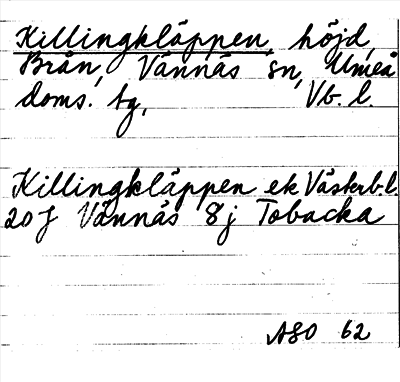 Killingkläppen, höjd,
Brån, Vännäs sn, Umeå
doms. tg, Vb. l.
Killingkläppen ek Västerb.l.
20 J Vännäs 8j Tobacka
ASO 62